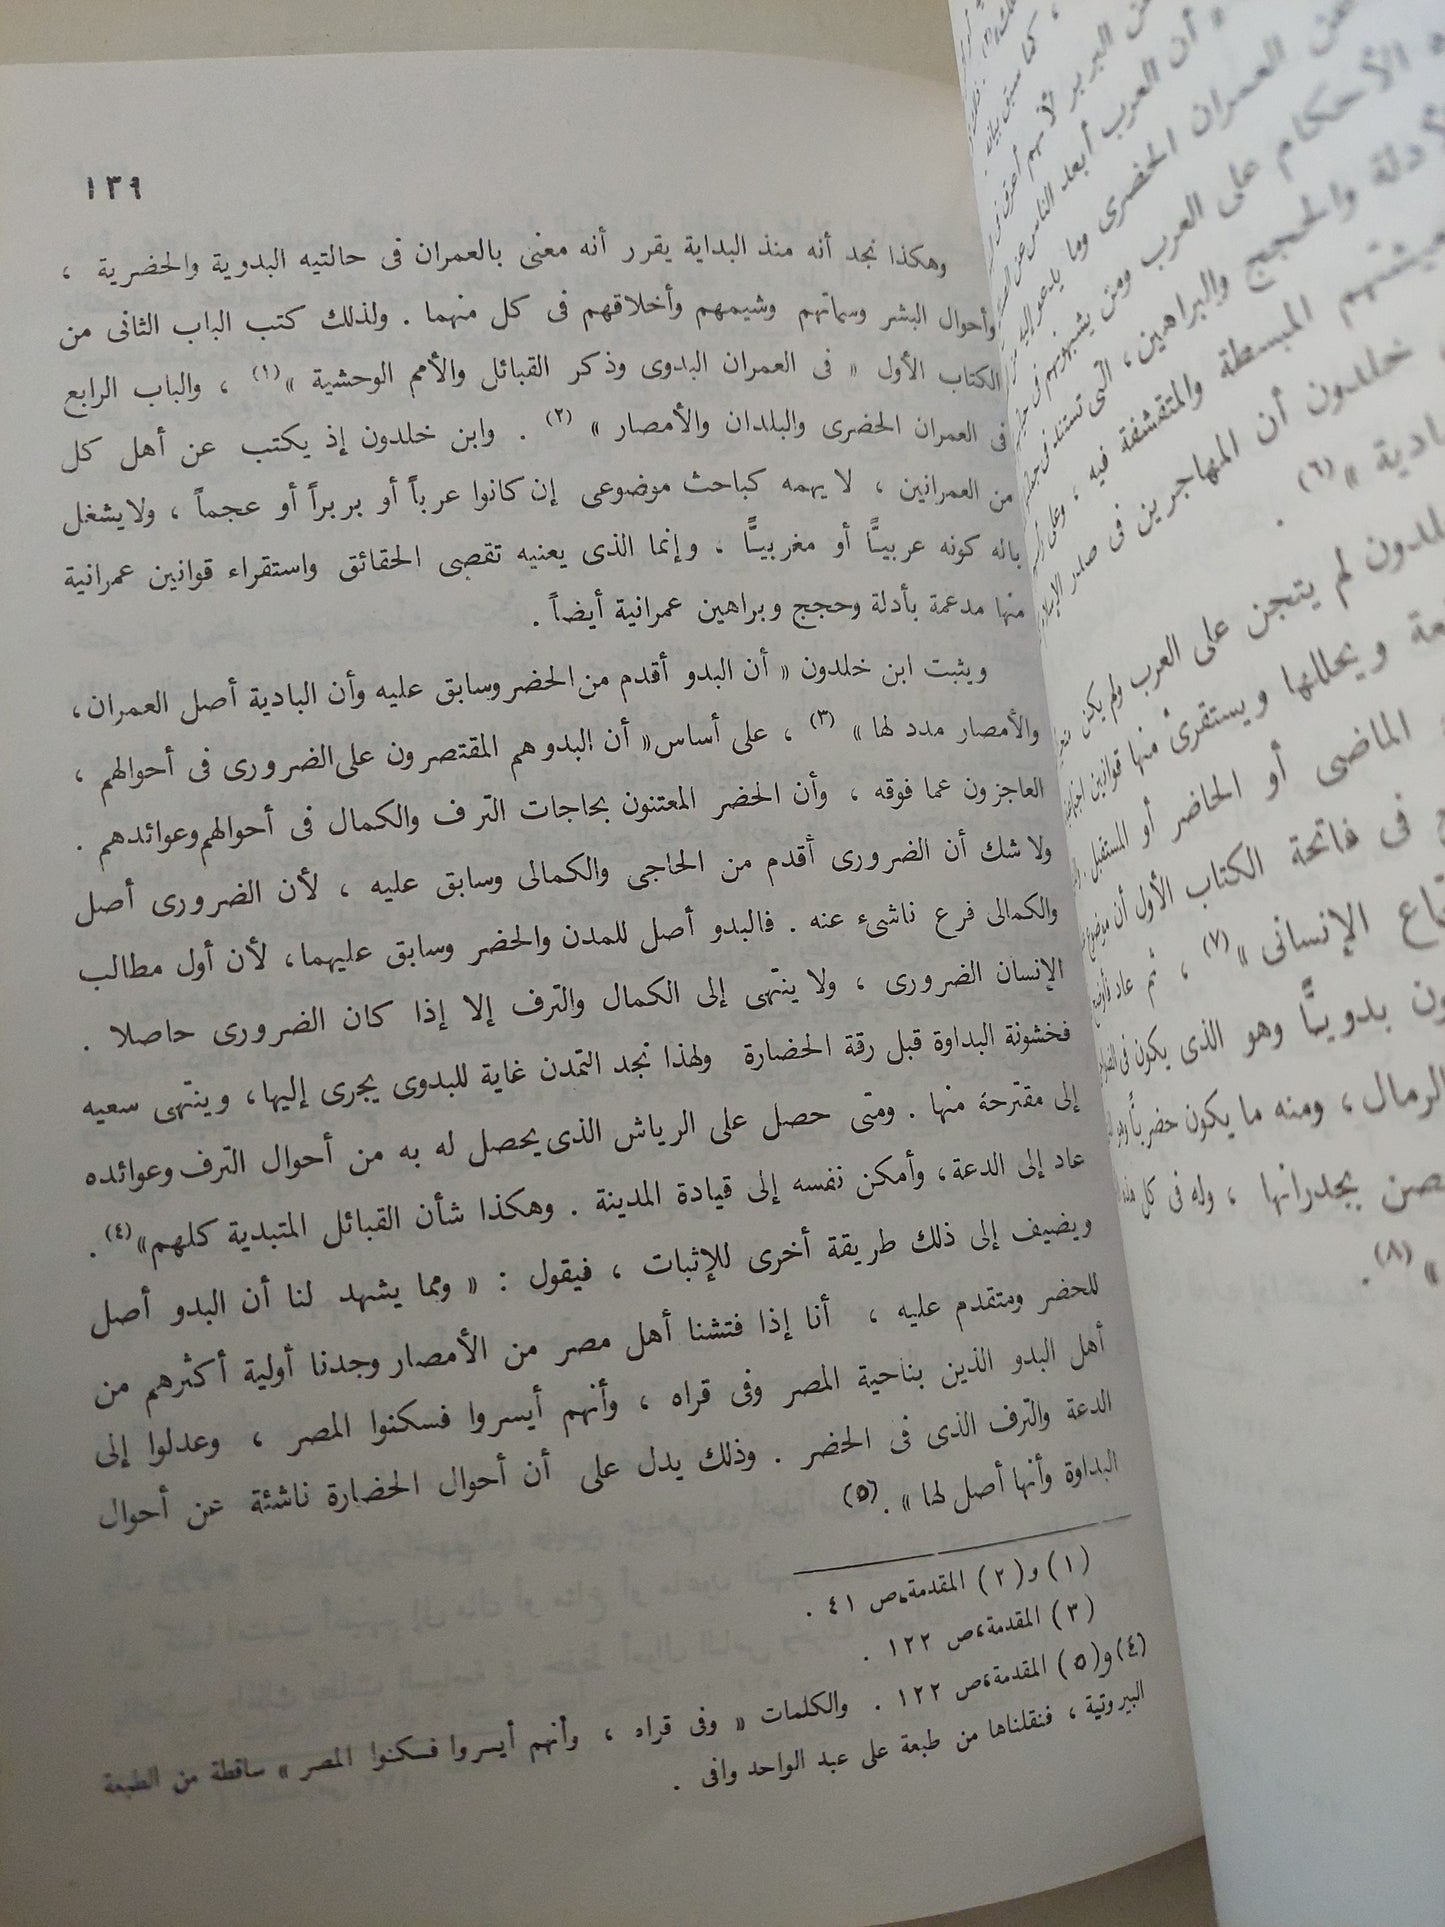 ١٣٩
وهكذا نجد أنه منذ البداية يقرر أنه معنى بالعمران فى حالتيه البدوية والحضرية ،
وأحوال البشر وسماتهم وشيمهم وأخلاقهم فى كل منهما . ولذلك كتب الباب الثانى من
الكتاب الأول « فى العمران البدوى وذكر القبائل والأمم الوحشية »(١) ، والباب الرابع
فى العمران الحضرى والبلدان والأمصار » (٢) . وابن خلدون إذ يكتب عن أهل كل
من العمرانين ، لا يهمه كباحث موضوعى إن كانوا عرباً أو بربراً أو عجماً ، ولا يشغل
باله كونه عربيًّا أو مغربيًّا . وإنما الذى يعنيه تقصى الحقائق واستقراء قوانين عمرانية
منها مدعمة بأدلة وحجج وبراهين عمرانية أيضاً .
ويثبت ابن خلدون « أن البدو أقدم من الحضر وسابق عليه وأن البادية أصل العمران،
والأمصار مدد لها » (٣) ، على أساس « أن البدو هم المقتصرون على الضرورى فى أحوالهم ،
العاجزون عما فوقه ، وأن الحضر المعتنون بحاجات الترف والكمال فى أحوالهم وعوائدهم .
ولا شك أن الضرورى أقدم من الحاجى والكمالى وسابق عليه ، لأن الضرورى أصل
والكمالى فرع ناشىء عنه . فالبدو أصل للمدن والحضر وسابق عليهما، لأن أول مطالب
الإنسان الضرورى ، ولا ينتهى إلى الكمال والترف إلا إذا كان الضرورى حاصلا .
فخشونة البداوة قبل رقة الحضارة ولهذا نجد التمدن غاية للبدوى يجرى إليها، وينتهى سعيه
إلى مقترحة منها . ومتى حصل على الرياش الذى يحصل له به من أحوال الترف وعوائده
عاد إلى الدعة، وأمكن نفسه إلى قيادة المدينة . وهكذا شأن القبائل المتبدية كلهم»(٤) .
ويضيف إلى ذلك طريقة أخرى للإثبات ، فيقول : « ومما يشهد لنا أن البدو أصل
للحضر ومتقدم عليه ، أنا إذا فتشنا أهل مصر من الأمصار وجدنا أولية أكثرهم من
أهل البدو الذين بناحية المصر وفى قراه ، وأنهم أيسروا فسكنوا المصر ، وعدلوا إلى
الدعة والترف الذى فى الحضر . وذلك يدل على أن أحوال الحضارة ناشئة عن أحوال
البداوة وأنها أصل لها » .(٥)
(١) و(٢) المقدمة،ص ٤١ .
(٣) المقدمة،ص ١٢٢ .
(٤) و(٥) المقدمة،ص ١٢٢ . والكلمات « وفى قراه ، وأنهم أيسروا فسكنوا المصر » ساقطة من الطبعة
البيروتية ، فنقلناها من طبعة على عبد الواحد وافى .
أن العرب أبعد الناس عن
من العمران الحضرى وما يدعو إليه
الأحكام على العرب ومن يشبههم فى
والحجج والبراهين، التى تستند فى
المبسطة والمتقشفة فيه ، وعلى
خلدون أن المهاجرين فى صدر
»(٦) .
لم يتجن على العرب ولم يكن
ويحللها ويستقرئ منها قوانين
الماضى أو الحاضر أو المستقبل
فى فاتحة الكتاب الأول أن
الإنسانى »(٧) ، ثم عاد
بدويًّا وهو الذى يكون فى
الرمال ، ومنه ما يكون حضريًّا
بجدرانها ، وله فى كل
»(٨).